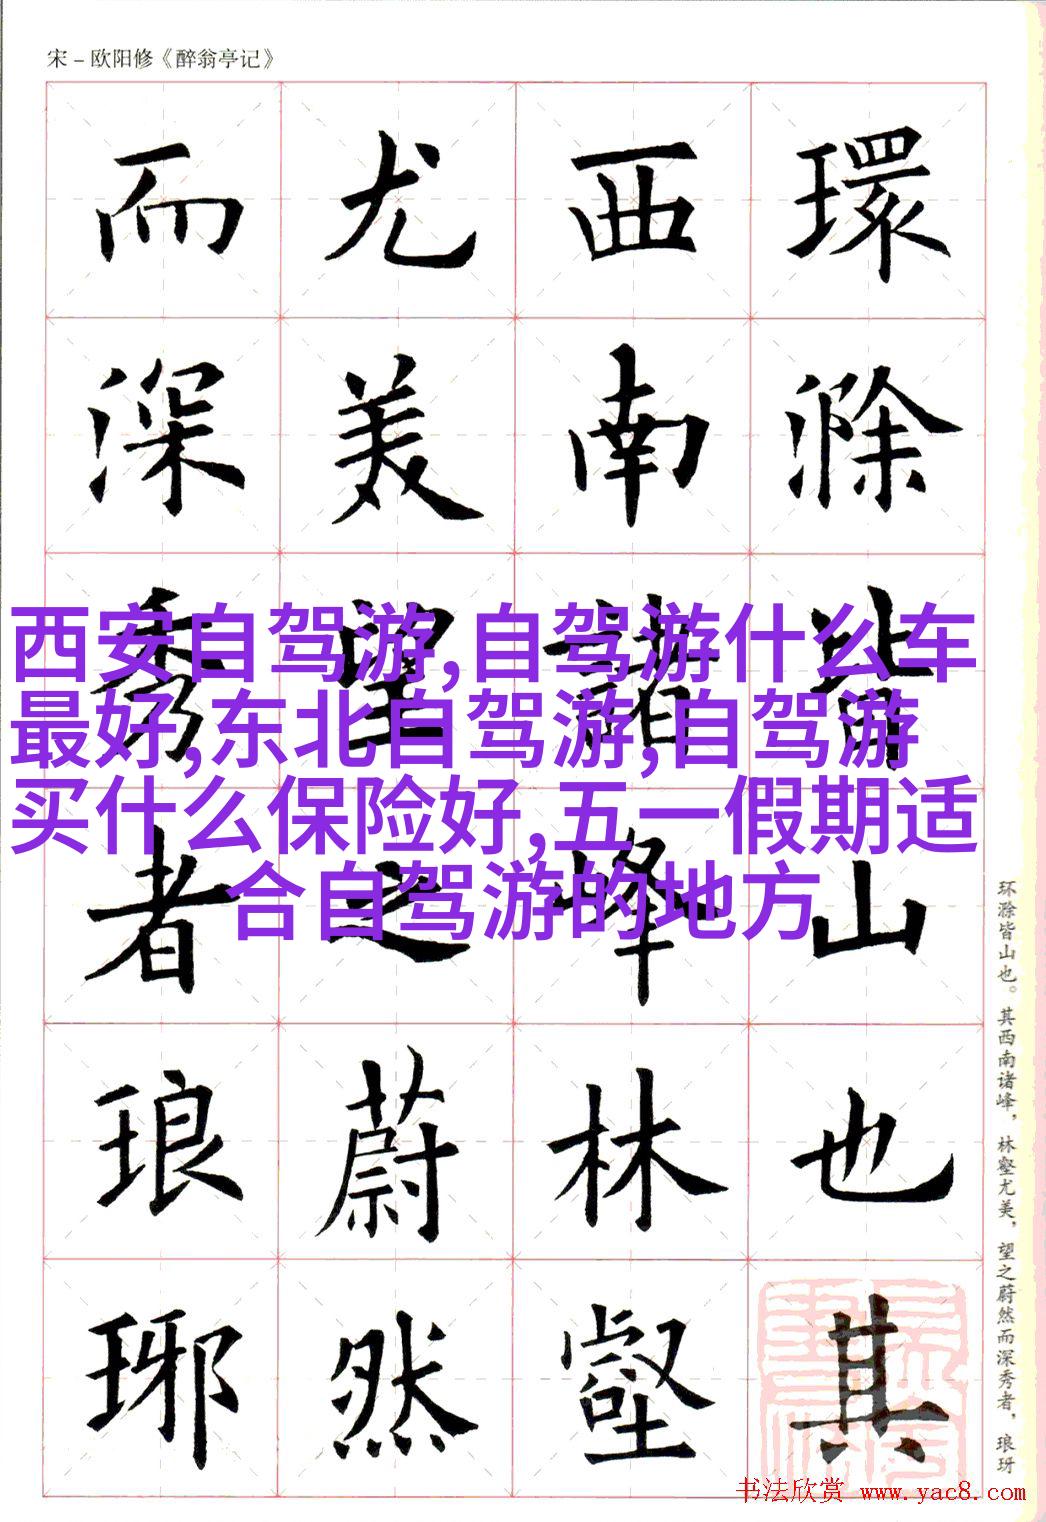 宋－欧阳修《醉翁亭记》
環滁皆山也其
西南諸峰林壑
尤美望之蔚然
而深秀者琅琊
西安自驾游,自驾游什么车
最好,东北自驾游,自驾游
买什么保险好,五一假期适
合自驾游的地方
环滁皆山也。其西南诸峰，林壑尤美，望之蔚然而深秀者，琅玡
书法欣赏 www.yac8.com